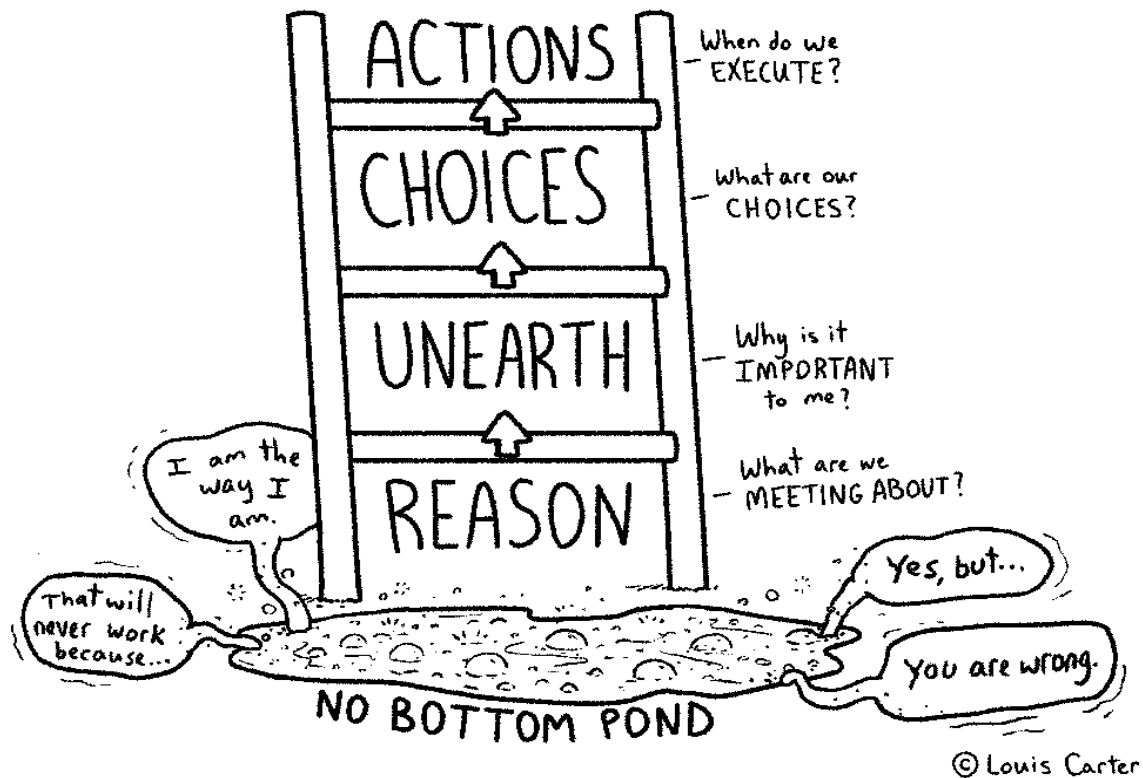 ACTIONS
When do we
EXECUTE?
CHOICES
What are our
CHOICES?
UNEARTH
Why is it
IMPORTANT
to me?
REASON
What are we
MEETING ABOUT?
I am the
way I
am.
That will
never work
because...
Yes, but...
You are wrong.
NO BOTTOM POND
© Louis Carter